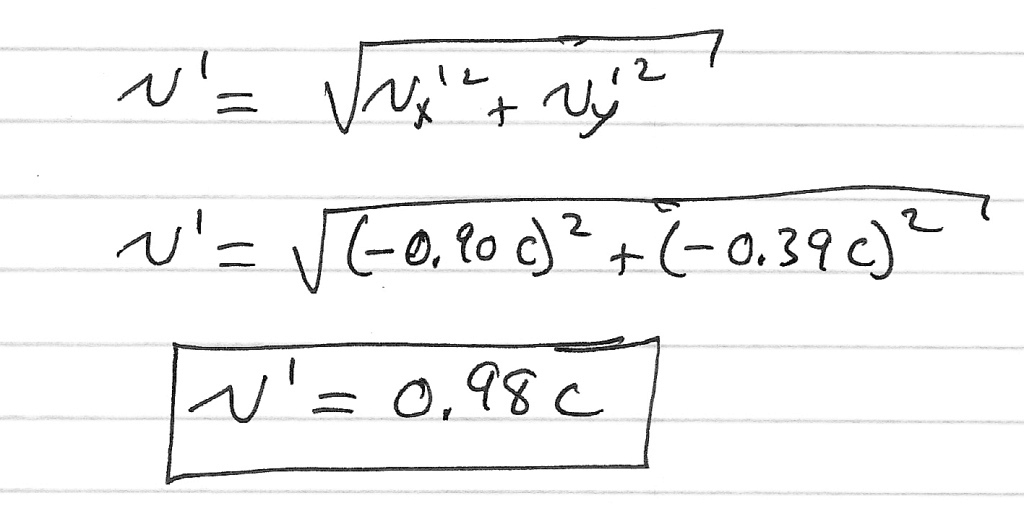 v' = √(vₓ'² + v_y'²)
v' = √((-0.90 c)² + (-0.39 c)²)
v' = 0.98 c